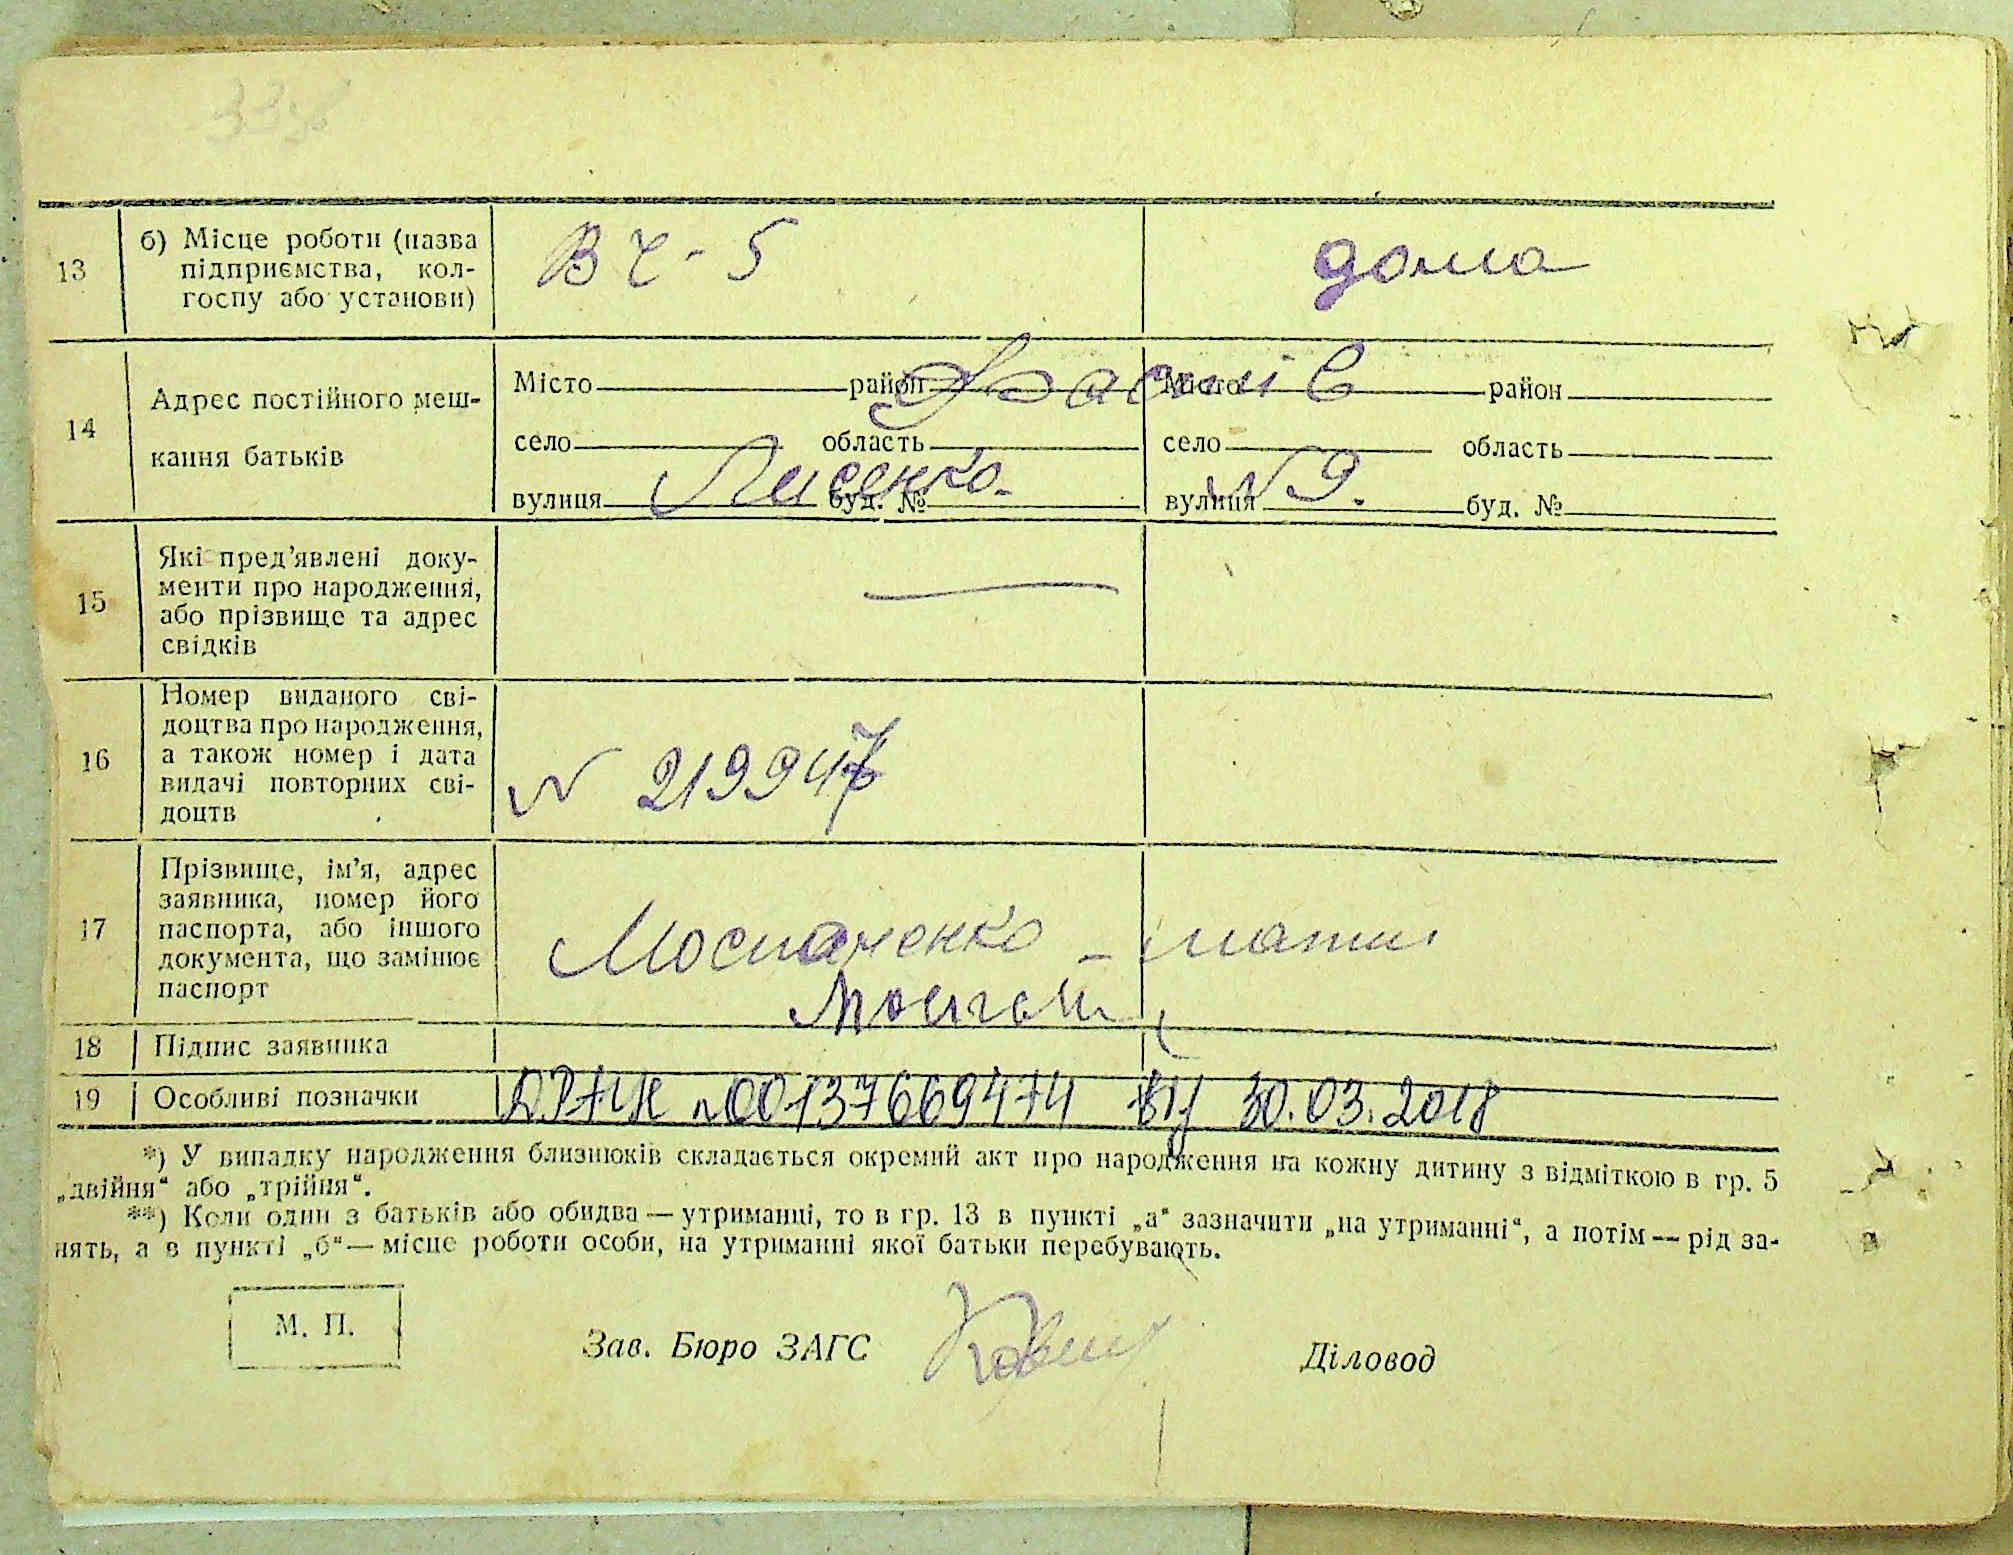 338
13 б) Місце роботи (назва підприємства, колгоспу або установи) ВЧ-5 дома
14 Адрес постійного мешкання батьків
Місто район Фастів Місто район
село область село область
вулиця Лисенко буд. № вулиця N 9. буд. №
15 Які пред’явлені документи про народження, або прізвище та адрес свідків —
16 Номер виданого свідоцтва про народження, а також номер і дата видачі повторних свідоцтв N 219947
17 Прізвище, ім’я, адрес заявника, номер його паспорта, або іншого документа, що замінює паспорт
Моспаненко – мати
18 Підпис заявника
19 Особливі позначки ДРАЦС №00137669474 від 30.03.2018
*) У випадку народження близнюків складається окремий акт про народження на кожну дитину з відміткою в гр. 5
„двійня“ або „трійня“.
**) Коли один з батьків або обидва — утриманці, то в гр. 13 в пункті „а“ зазначити „на утриманні“, а потім — рід за-
нять, а в пункті „б“ — місце роботи особи, на утриманні якої батьки перебувають.
М. П.
Зав. Бюро ЗАГС
Діловод